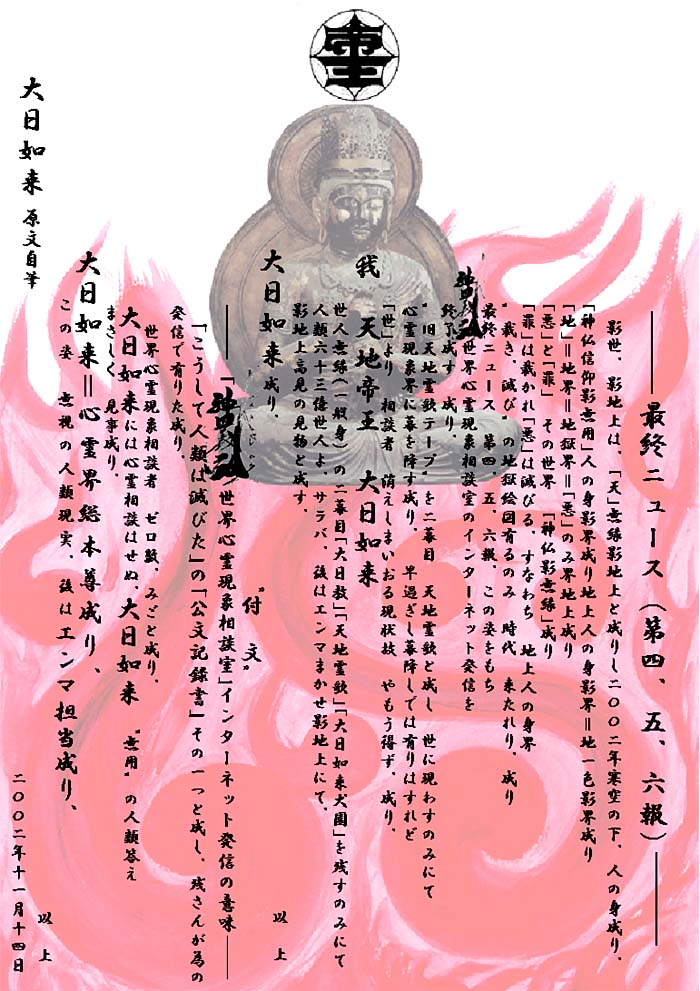 ━━最終ニュース(第四、五、六報)━━
影世、影地上は、「天」無縁影地上と成りし二〇〇二年寒空の下、人の身成り、
「神仏信仰影無用」人の身影界成り地上人の身影界=地一色影界成り
「地」=地界=地獄界=「悪」のみ界地上成り
「悪」と「罪」 その世界 「神仏影無縁」成り
「罪」は裁かれ「悪」は滅びる、すなわち 地上人の身界
“裁き、滅び”の地獄絵図有るのみ 時代 来たれり、成り
最終ニュース、第四、五、六報、この姿をもち
世界心霊現象相談室のインターネット発信を
終了成す、成り、
“旧天地霊歌テープ”を二幕目 天地霊歌と成し 世に現わすのみにて
心霊現象界に幕を降す成り、 早過ぎし幕降しでは有りはすれど
「世」より 相談者 消えしまいおる現状故 やもう得ず、成り、
我 天地帝王 大日如来
世人無縁(一般身)の二幕目「大日教」「天地霊歌」「大日如来犬園」を残すのみにて
人類六十三億世人よ、サラバ、後はエンマまかせ影地上にて、
影地上高見の見物と成す、
大日如来成り、
以上
“付文”
━━「世界心霊現象相談室」インターネット発信の意味━━
「こうして人類は滅びた」の「公文記録書」その一つと成し、残さんが為の
発信で有りた成り、
世界心霊現象相談者 ゼロ数、みごと成り、
大日如来には心霊相談はせぬ、大日如来 “無用”の人類答え
まさしく 見事成り、
大日如来=心霊界総本尊成り、
この姿 無視の人類現実、後はエンマ担当成り、
以上
大日如来 原文自筆
二〇〇二年十一月十四日